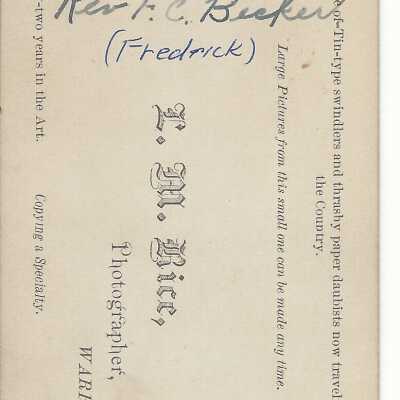 Rev F. C. Becker
(Fredrick)
Tin-type swindlers and thrashy paper daubists now travel
the Country.
Large Pictures from this small one can be made any time.
L. M. Rice,
Photographer,
-two years in the Art.
Copying a Specialty.